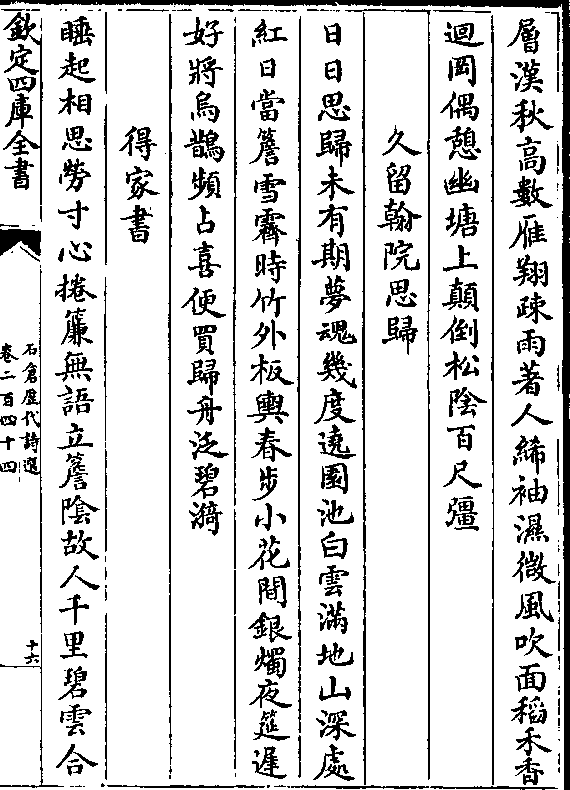 層漢秋高數雁翔疎雨著人絺袖濕微風吹面稻禾香
迴岡偶憩幽塘上顛倒松陰百尺彊
久留翰院思歸
日日思歸未有期夢魂幾度遶園池白雲滿地山深處
紅日當簷雪霽時竹外板輿春步小花間銀燭夜筵遲
好將烏鵲頻占喜便買歸舟泛碧漪
得家書
睡起相思勞寸心捲簾無語立簷陰故人千里碧雲合
欽定四庫全書
石倉歷代詩選
卷二百四十四
十六